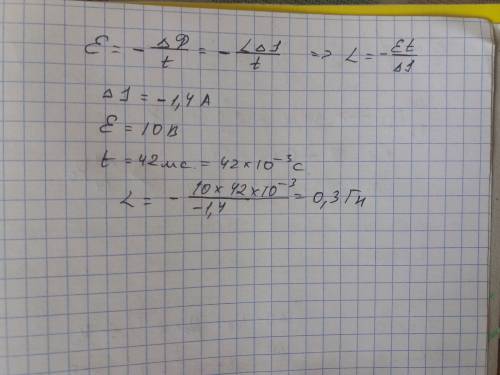 Ɛ = - ΔΦ/t = - LΔI/t => L = - Ɛt/ΔI
ΔI = -1,4 A
Ɛ = 10 В
t = 42 мс = 42 × 10⁻³ с
L = - 10 × 42 × 10⁻³/-1,4 = 0,3 Гн